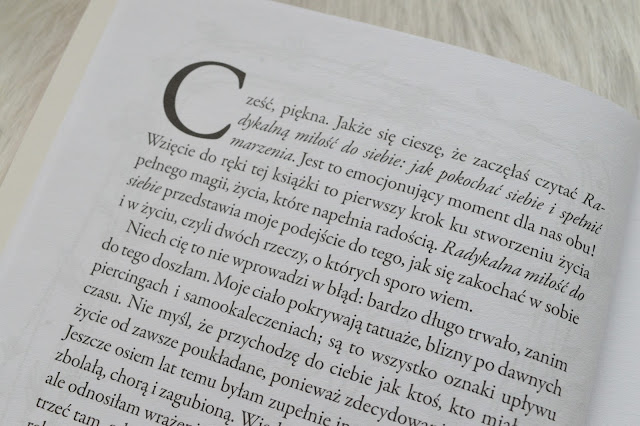 Cześć, piękna. Jakże się cieszę, że zaczęłaś czytać Ra-
dykalną miłość do siebie: jak pokochać siebie i spełnić
marzenia. Jest to emocjonujący moment dla nas obu!
Wzięcie do ręki tej książki to pierwszy krok ku stworzeniu życia
pełnego magii, życia, które napełnia radością. Radykalna miłość do
siebie przedstawia moje podejście do tego, jak się zakochać w sobie
i w życiu, czyli dwóch rzeczy, o których sporo wiem.
Niech cię to nie wprowadzi w błąd: bardzo długo trwało, zanim
do tego doszłam. Moje ciało pokrywają tatuaże, blizny po dawnych
piercingach i samookaleczeniach; są to wszystko oznaki upływu
czasu. Nie myśl, że przychodzę do ciebie jak ktoś, kto miał
życie od zawsze poukładane, ponieważ zdecydowanie
Jeszcze osiem lat temu byłam zupełnie
zbolałą, chorą i zagubioną.
ale odnosiłam
trzeć tam